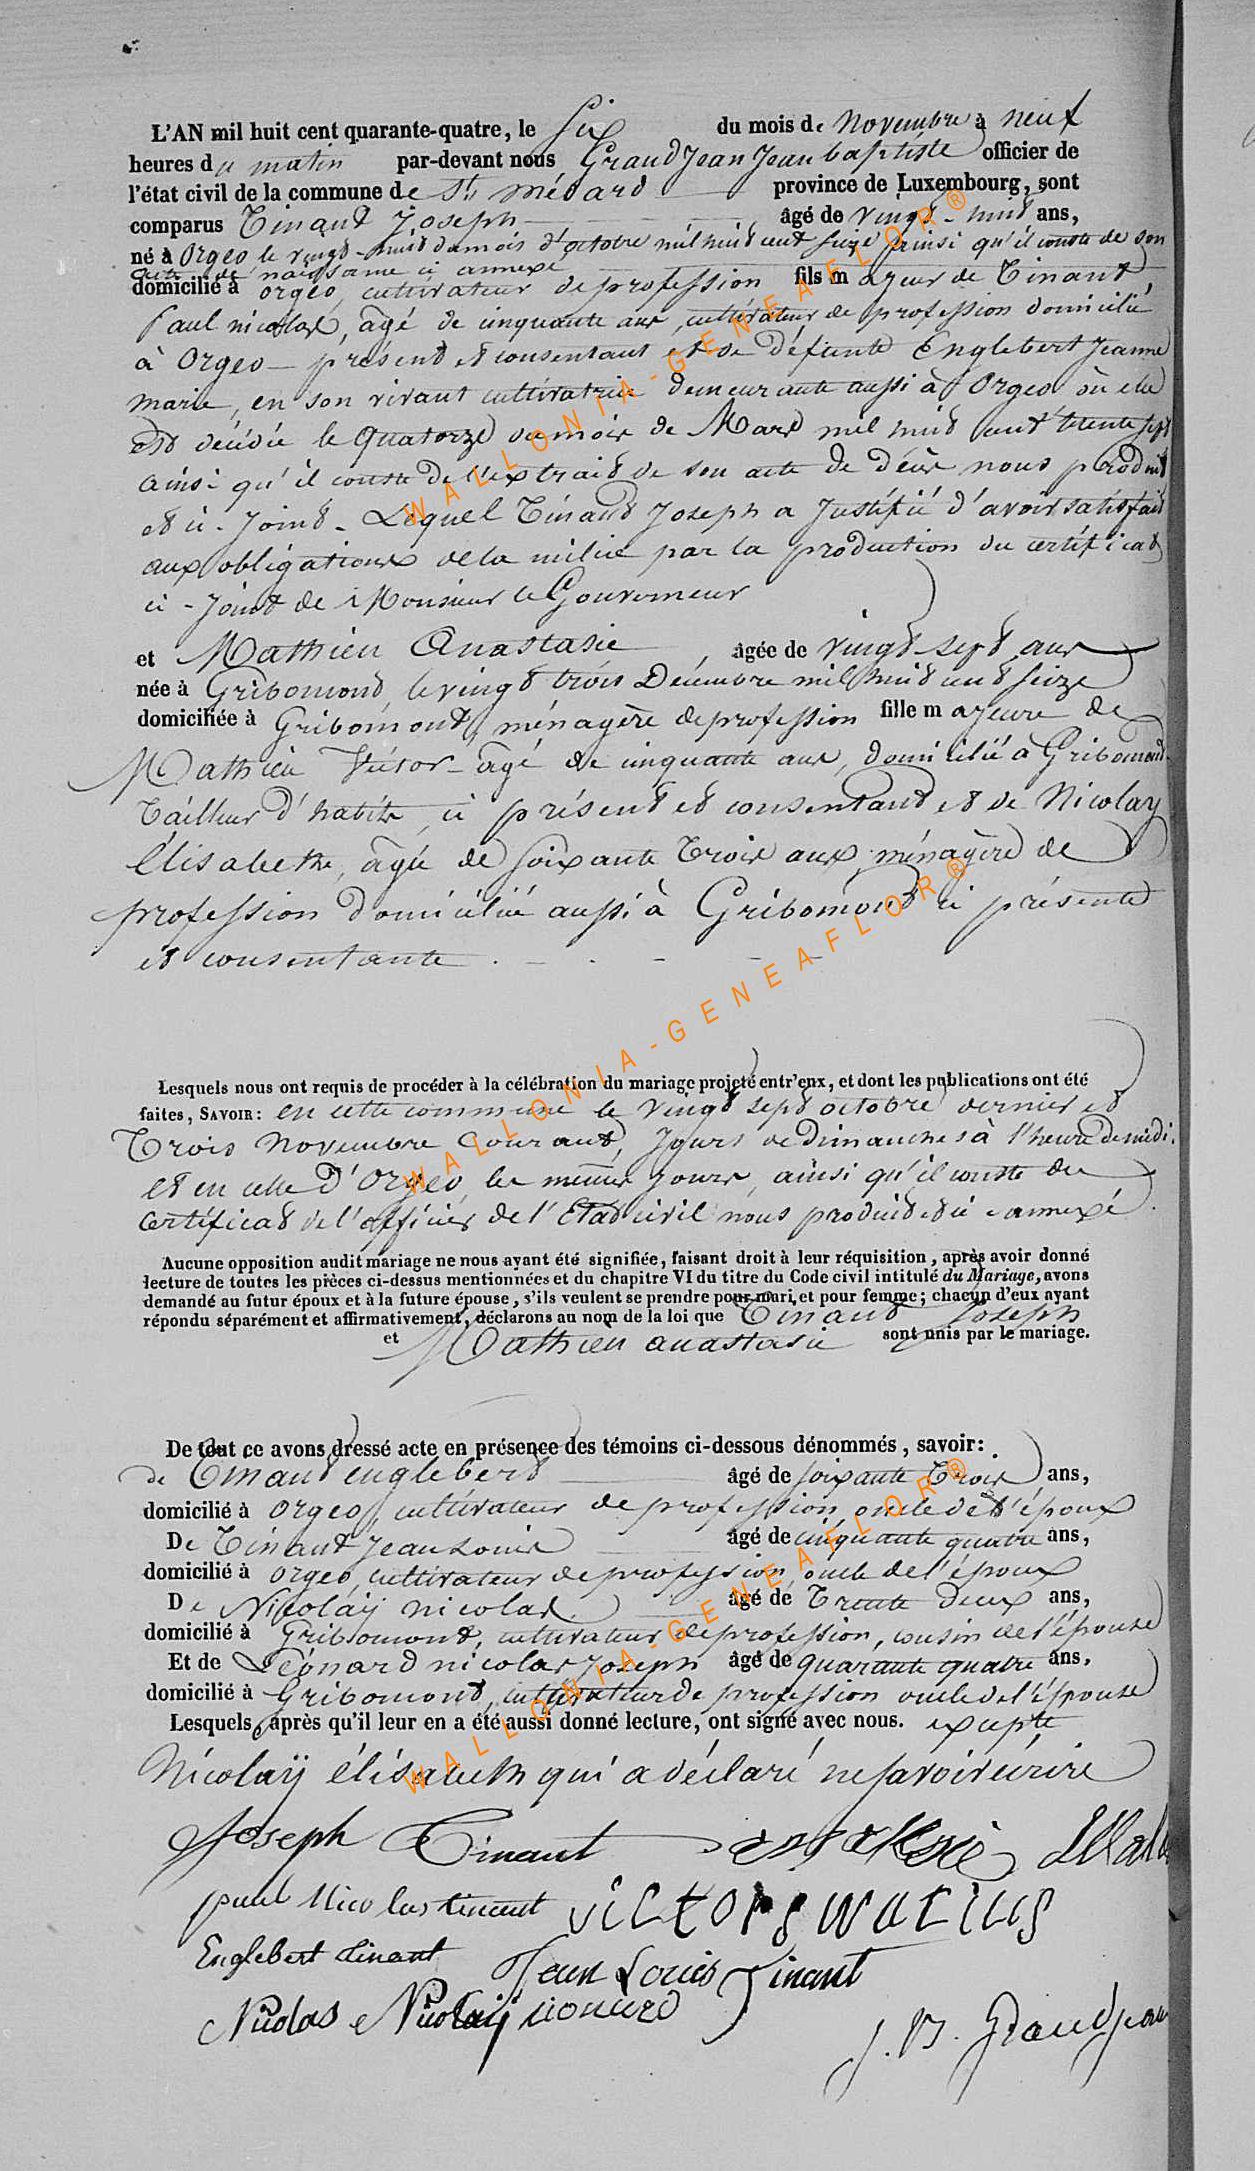 L'AN mil huit cent quarante-quatre, le Six du mois de Novembre à neuf
heures du matin par-devant nous Grandjean Jean baptiste officier de
l'état civil de la commune de St. médard province de Luxembourg, sont
comparus Tinant Joseph âgé de vingt-huit ans,
né à Orgeo le vingt-huit du mois d'octobre mil huit cent seize ainsi qu'il conste de son
acte de naissance ci annexé
domicilié à orgéo, cultivateur de profession fils majeur de Tinant
Paul nicolas, âgé de cinquante ans, cultivateur de profession domicilié
à Orgeo - présent et consentant et de Défunte Englebert Jeanne
marie, en son vivant cultivatrice demeurante aussi à Orgeo où elle
est décédée le Quatorze du mois de Mars mil huit cent trente sept
ainsi qu'il conste de l'extrait de son acte de décès nous produit
et ci-Joint - Lequel Tinant Joseph a Justifié d'avoir satisfait
aux obligations de la milice par la production du certificat
ci-Joint de Monsieur le Gouverneur
et Mathieu Anastasie âgée de vingt-sept ans
née à Gribomont le vingt trois Décembre mil huit cent seize
domiciliée à Gribomont, ménagère de profession fille majeure de
Mathieu Victor - âgé de cinquante ans, domicilié à Gribomont
Tailleur d'habits, ci présent et consentant et de Nicolay
Elisabethe, âgée de soixante Trois ans, ménagère de
profession domiciliée aussi à Gribomont ci présente
et consentante
Lesquels nous ont requis de procéder à la célébration du mariage projeté entr'enx, et dont les publications ont été
faites, SAVOIR: en cette commune le vingt sept octobre dernier et
Trois Novembre Courant, Jours de Dimanches à l'heure de midi,
et en celle D'Orgeo, les mêmes Jours, ainsi qu'il conste du
certificat de l'officier de l'Etat civil nous produit et ci annexé.
Aucune opposition audit mariage ne nous ayant été signifiée, faisant droit à leur réquisition, après avoir donné
lecture de toutes les pièces ci-dessus mentionnées et du chapitre VI du titre du Code civil intitulé du Mariage, avons
demandé au futur époux et à la future épouse, s'ils veulent se prendre pour mari et pour femme; chacun d'eux ayant
répondu séparément et affirmativement, déclarons au nom de la loi que Tinant Joseph
et Mathieu anastasie sont unis par le mariage.
De tout ce avons dressé acte en présence des témoins ci-dessous dénommés, savoir:
de Tinant englebert âgé de soixante Trois ans,
domicilié à orgeo, cultivateur de profession oncle de l'époux
De Tinant Jean Louis âgé de cinquante quatre ans,
domicilié à orgeo, cultivateur de profession, oncle de l'époux
De Nicolaÿ nicolas âgé de Trente Deux ans,
domicilié à Gribomont, cultivateur de profession, cousin de l'épouse
Et de Léonard nicolas Joseph âgé de quarante quatre ans,
domicilié à Gribomont, cultivateur de profession oncle de l'épouse
Lesquels, après qu'il leur en a été aussi donné lecture, ont signé avec nous. excepté
Nicolaÿ élisabeth qui a déclaré ne savoir écrire
Joseph Tinant
paul Nicolas tinant
Englebert tinant Jean Louis Tinant
Nicolas Nicolaÿ
J. B. Grandjean
WALLONIA-GENEAFLOR®
WALLONIA-GENEAFLOR®
WALLONIA-GENEAFLOR®